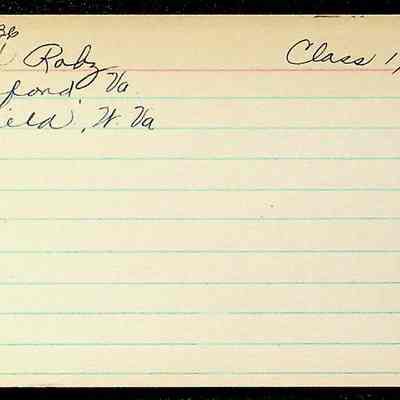 36
Raby Class 1,
fond, Va.
ield, W. Va